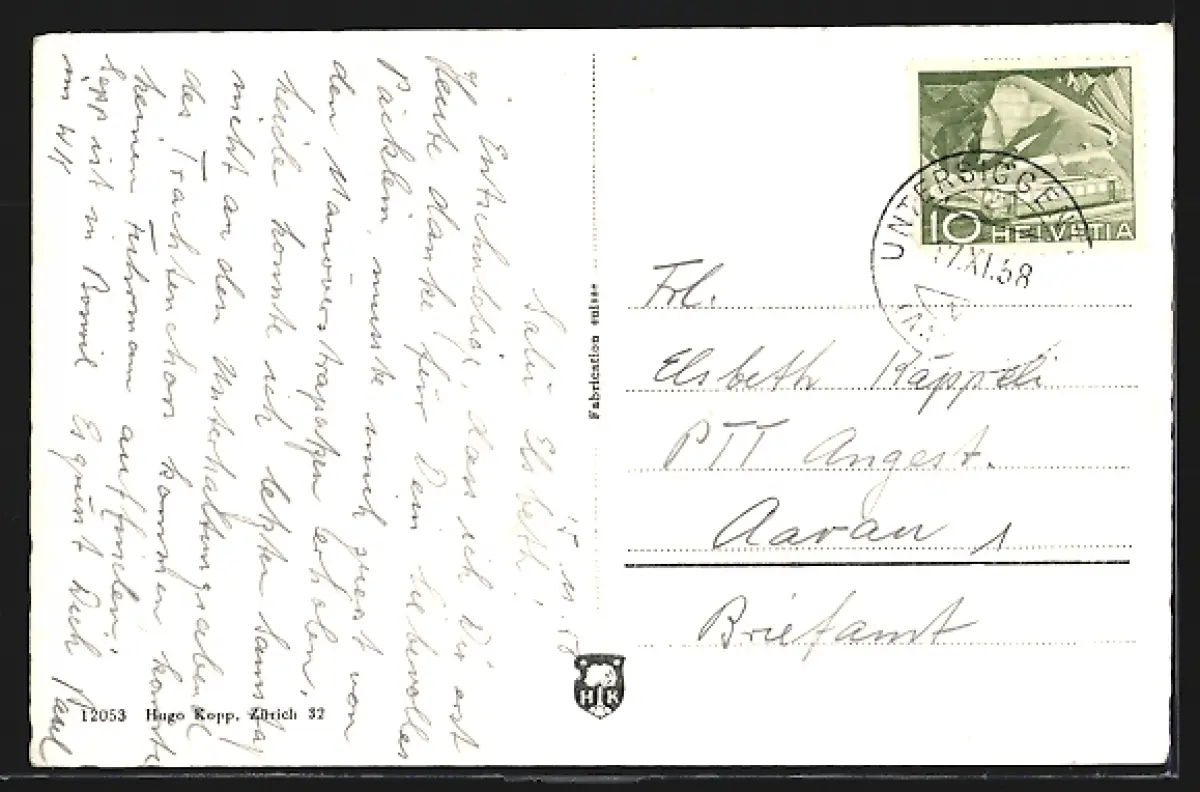 Salü Elsbeth!
Entschuldige, dass ich Dir erst
Heute danke für Dein liebvolles
Päcklein, musste mich zuerst von
den Manöverstrapatzen erholen,
leider konnte ich letzten Samstag
nicht an den Unterhaltungsabend
des Trachtenchors kommen, konnte
keinen Fuhrmann auffinden!
Sepp ist in Boswil Es grüsst Dich Paul
im WK
12053 Hugo Kopp, Zürich 32
Fabrication suisse
HK
10 HELVETIA
UNTERSIGGEN
17.XI.58
Frl.
Elsbeth Käppeli
PTT Angest.
Aarau 1
Briefamt